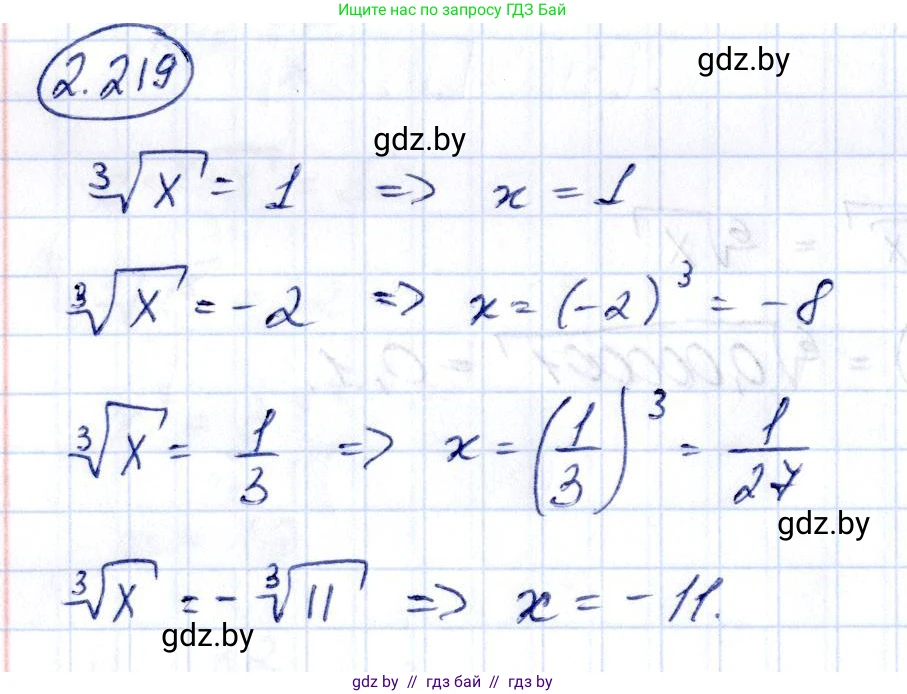 Ищите нас по запросу ГДЗ Бай
2.219
gdz.by
gdz.by
∛x = 1 => x = 1
∛x = -2 => x = (-2)³ = -8
∛x = 1/3 => x = (1/3)³ = 1/27
gdz.by
∛x = -∛11 => x = -11.
gdz.by
gdz.by // гдз бай // гдз by